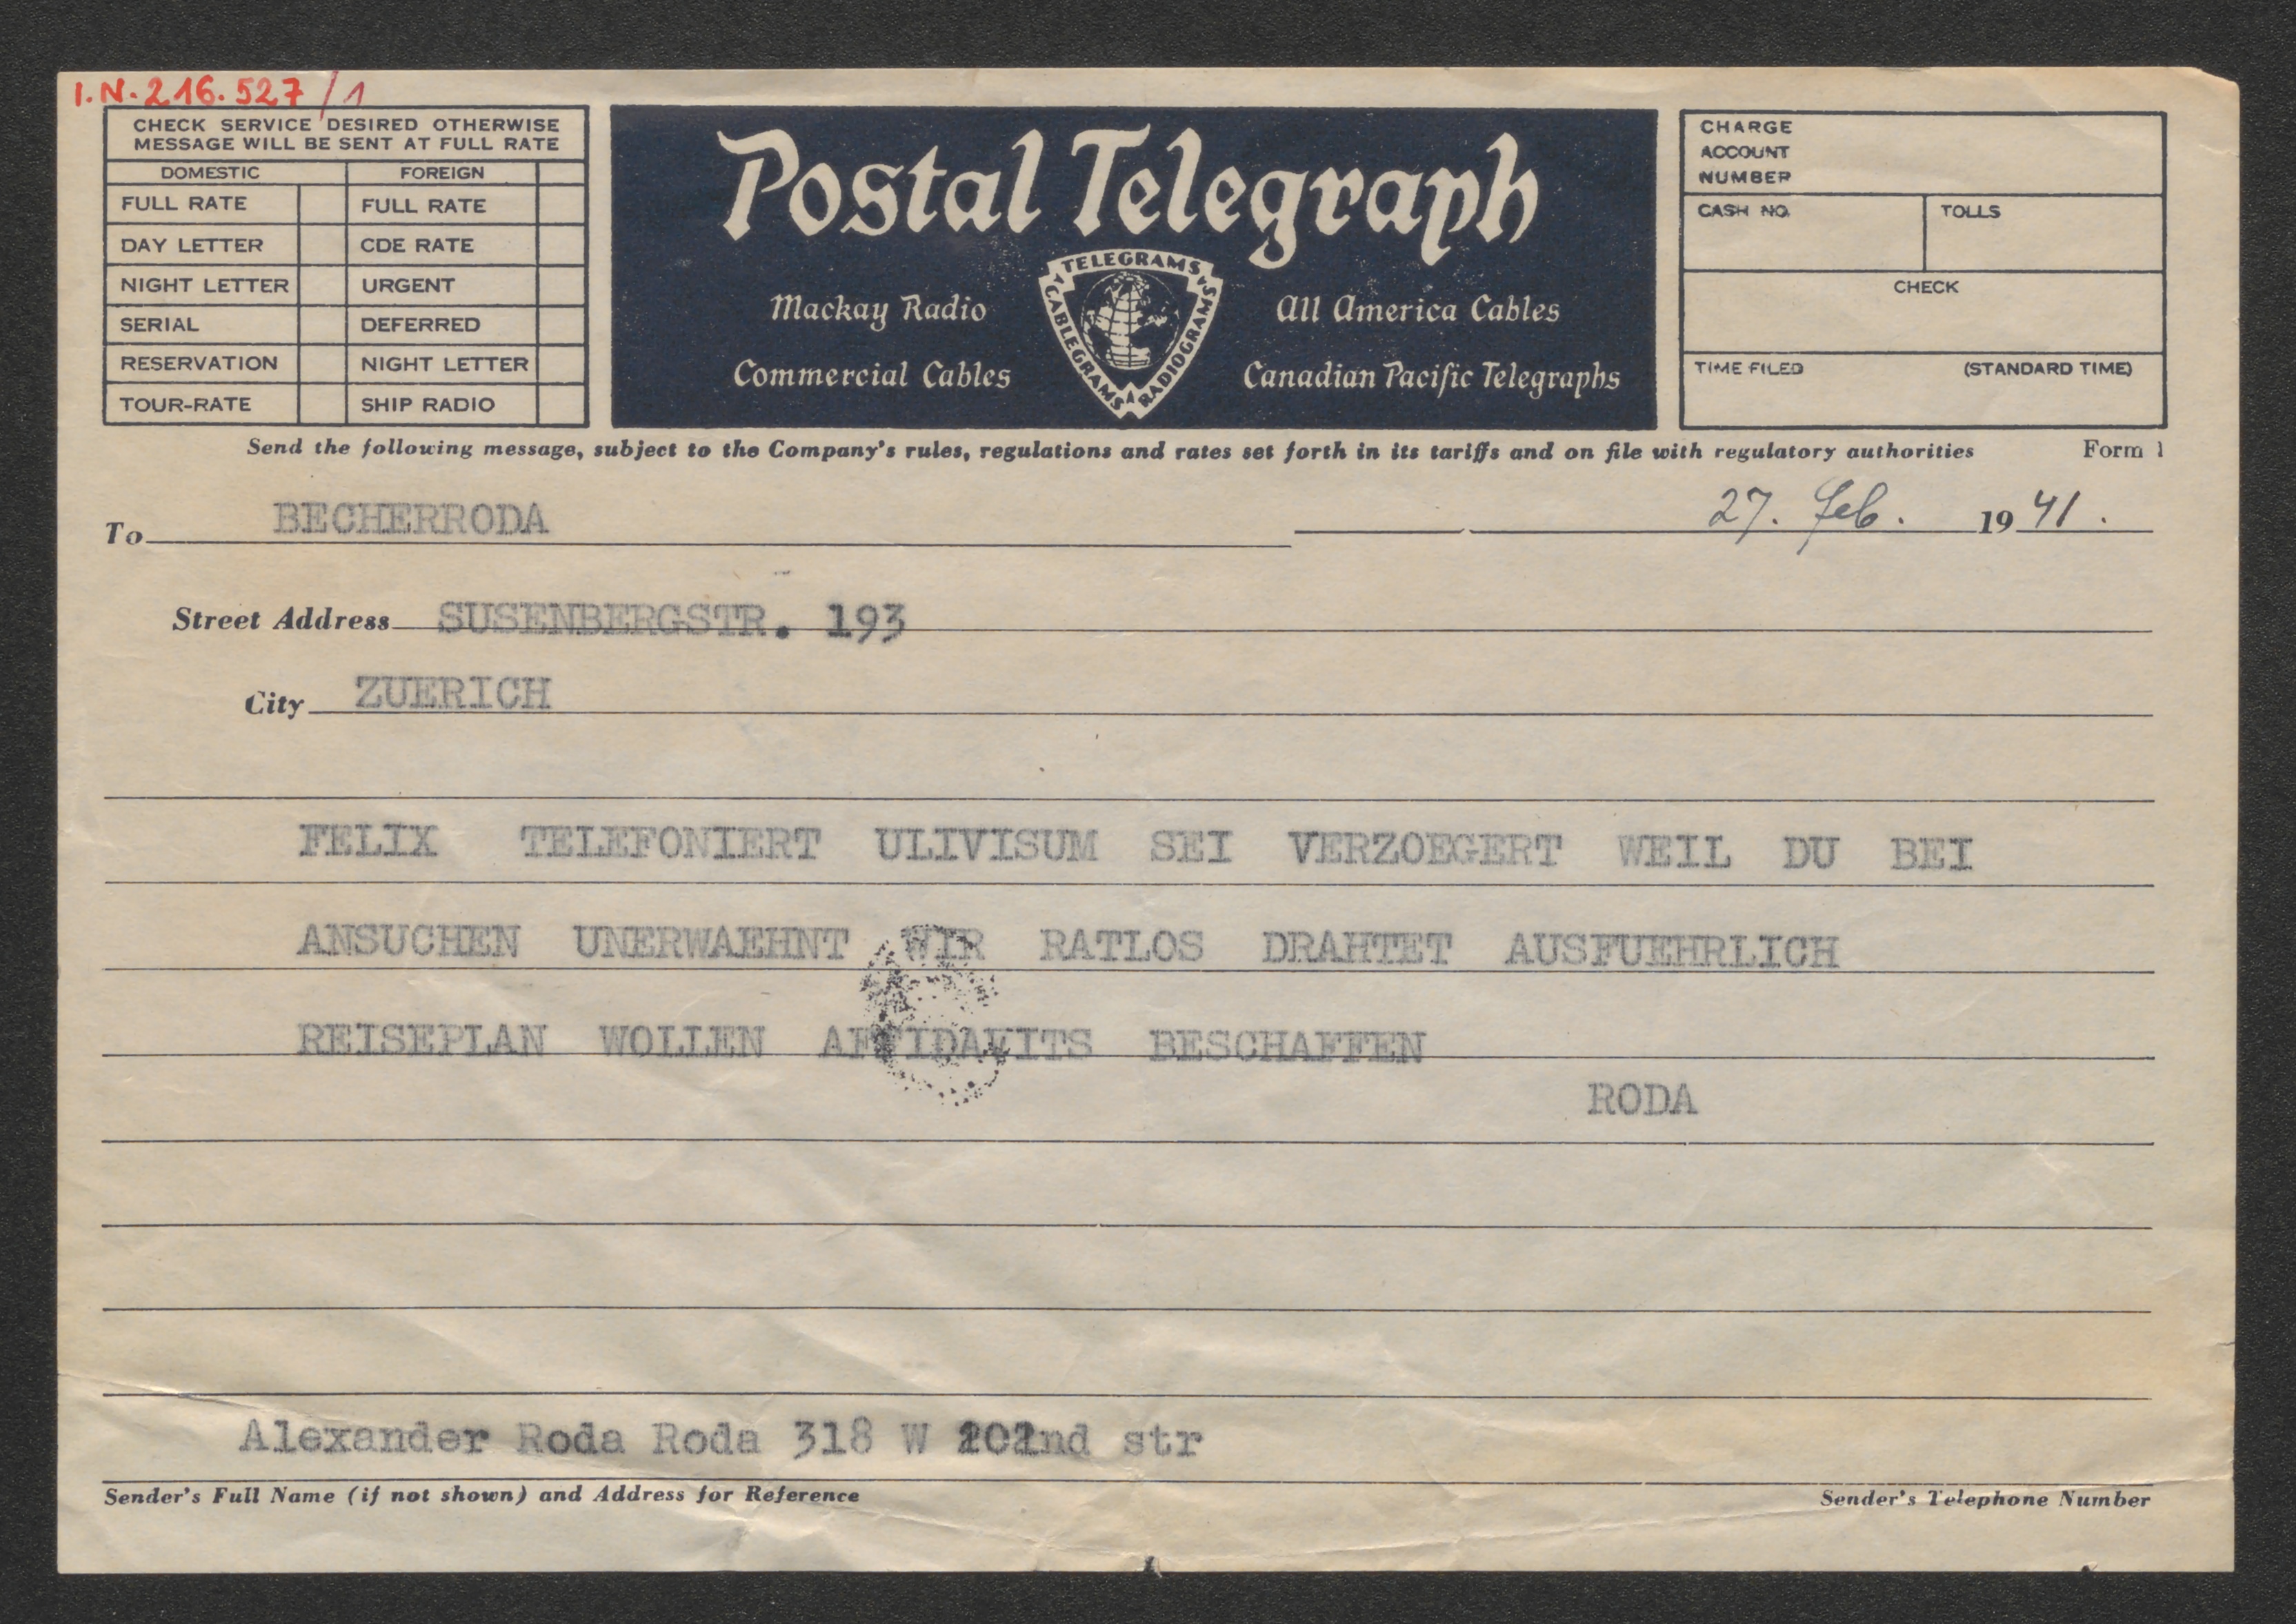 I.N. 216.527/1
CHECK SERVICE DESIRED OTHERWISE
MESSAGE WILL BE SENT AT FULL RATE
DOMESTIC FOREIGN
FULL RATE FULL RATE
DAY LETTER CDE RATE
NIGHT LETTER URGENT
SERIAL DEFERRED
RESERVATION NIGHT LETTER
TOUR-RATE SHIP RADIO
Postal Telegraph
TELEGRAMS
CABLEGRAMS
RADIOGRAMS
Mackay Radio All America Cables
Commercial Cables Canadian Pacific Telegraphs
CHARGE
ACCOUNT
NUMBER
CASH NO. TOLLS
CHECK
TIME FILED (STANDARD TIME)
Send the following message, subject to the Company's rules, regulations and rates set forth in its tariffs and on file with regulatory authorities Form 1
To BECHERRODA 27. Feb. 1941.
Street Address SUSENBERGSTR. 193
City ZUERICH
FELIX TELEFONIERT ULIVISUM SEI VERZOEGERT WEIL DU BEI
ANSUCHEN UNERWAEHNT WIR RATLOS DRAHTET AUSFUEHRLICH
REISEPLAN WOLLEN AFFIDAVITS BESCHAFFEN
RODA
Alexander Roda Roda 318 W str
Sender's Full Name (if not shown) and Address for Reference Sender's Telephone Number